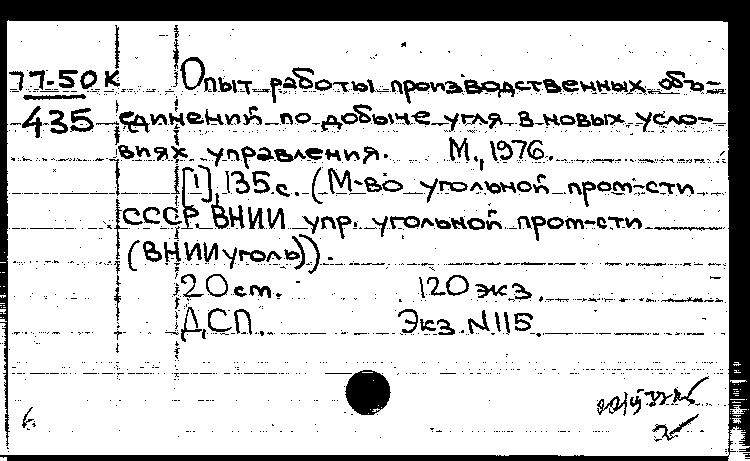 77-50К
435
Опыт работы производственных объ=
единений по добыче угля в новых усло-
виях управления. М., 1976.
[1], 135 с. (М-во угольной пром-сти
СССР. ВНИИ упр. угольной пром-сти
(ВНИИуголь)).
20 см. 120 экз.
ДСП. Экз. N115.
6